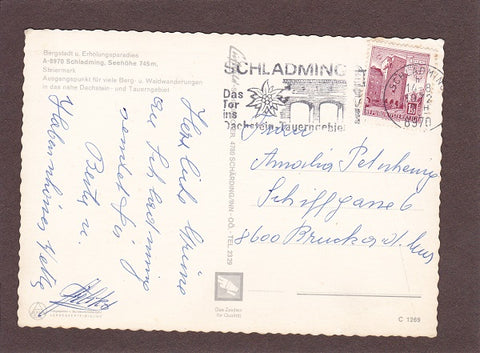 Bergstadt u. Erholungsparadies
A-8970 Schladming, Seehöhe 745m,
Steiermark
Ausgangspunkt für viele Berg- u. Waldwanderungen
in das nahe Dachstein- und Tauerngebiet
Herzliche Grüße
aus Schladming
sendet Dir
Berta u.
SCHLADMING
Das
Tor
ins
Dachstein-Tauerngebiet
8970
Frau
Amalia
Schiffgasse 6
8600 Bruck a. d. Mur
4780 SCHÄRDING/INN - OÖ. - TEL. 2329
Das Zeichen
für Qualität
C 1269